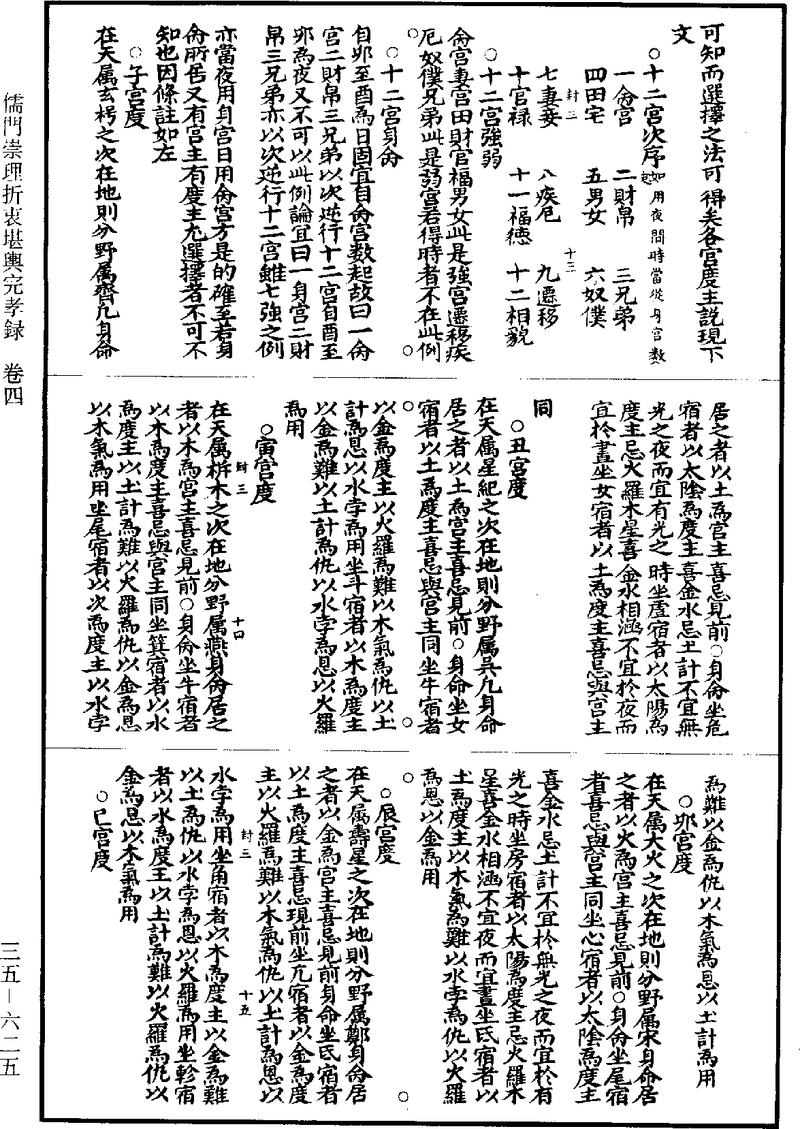 可知而選擇之法可得矣各宮度主説現下
文
○十二宮次序如用夜間時當從身宮數起
一命宮　二財帛　三兄弟
四田宅　五男女　六奴僕
封三　十三
七妻妾　八疾厄　九遷移
十官禄　十一福德　十二相貌
○十二宮強弱
命宮妻宮田財官福男女此是強宮遷移疾
厄奴僕兄弟此是弱宮若得時者不在此例
○十二宮身命
自卯至酉為日固宜自命宮数起故曰一命
宮二財帛三兄弟以次逆行十二宮自酉至
卯為夜又不可以此例論宜曰一身宮二財
帛三兄弟亦以次逆行十二宮雖七強之例
亦當夜用身宮日用命宮方是的確至若身
命所居又有宮主有度主尤選擇者不可不
知也因條註如左
○子宮度
在天属玄枵之次在地則分野属齊凡身命
居之者以土為宮主喜忌見前○身命坐危
宿者以太陰為度主喜金水忌土計不宜無
光之夜而宜有光之時坐虚宿者以太陽為
度主忌火羅木星喜金水相涵不宜於夜而
宜於晝坐女宿者以土為度主喜忌與宮主
同
○丑宮度
在天属星紀之次在地則分野属吳凡身命
居之者以土為宮主喜忌見前○身命坐女
宿者以土為度主喜忌與宮主同坐牛宿者
以金為度主以火羅為難以木氣為仇以土
計為恩以水孛為用坐斗宿者以木為度主
以金為難以土計為仇以水孛為恩以火羅
為用
○寅宮度
在天属析木之次在地分野属燕身命居之
封三　十四
者以木為宮主喜忌見前○身命坐牛宿者
以木為度主喜忌與宮主同坐箕宿者以水
為度主以土計為難以火羅為仇以金為恩
以木氣為用坐尾宿者以次為度主以水孛
為難以金為仇以木氣為恩以土計為用
○卯宮度
在天属大火之次在地則分野属宋身命居
之者以火為宮主喜忌見前○身命坐尾宿
者喜忌與宮主同坐心宿者以太陰為度主
喜金水忌土計不宜於無光之夜而宜於有
光之時坐房宿者以太陽為度主忌火羅木
星喜金水相涵不宜夜而宜晝坐氐宿者以
土為度主以木氣為難以水孛為仇以火羅
為恩以金為用
○辰宮度
在天属壽星之次在地則分野属鄭身命居
之者以金為宮主喜忌見前身命坐氐宿者
以土為度主喜忌現前坐亢宿者以金為度
主以火羅為難以木氣為仇以土計為恩以
封三　十五
水孛為用坐角宿者以木為度主以金為難
以土為仇以水孛為恩以火羅為用坐軫宿
者以水為度王以土計為難以火羅為仇以
金為恩以木氣為用
○巳宮度
儒門崇理折衷堪輿完孝録　卷四
三五－六二五